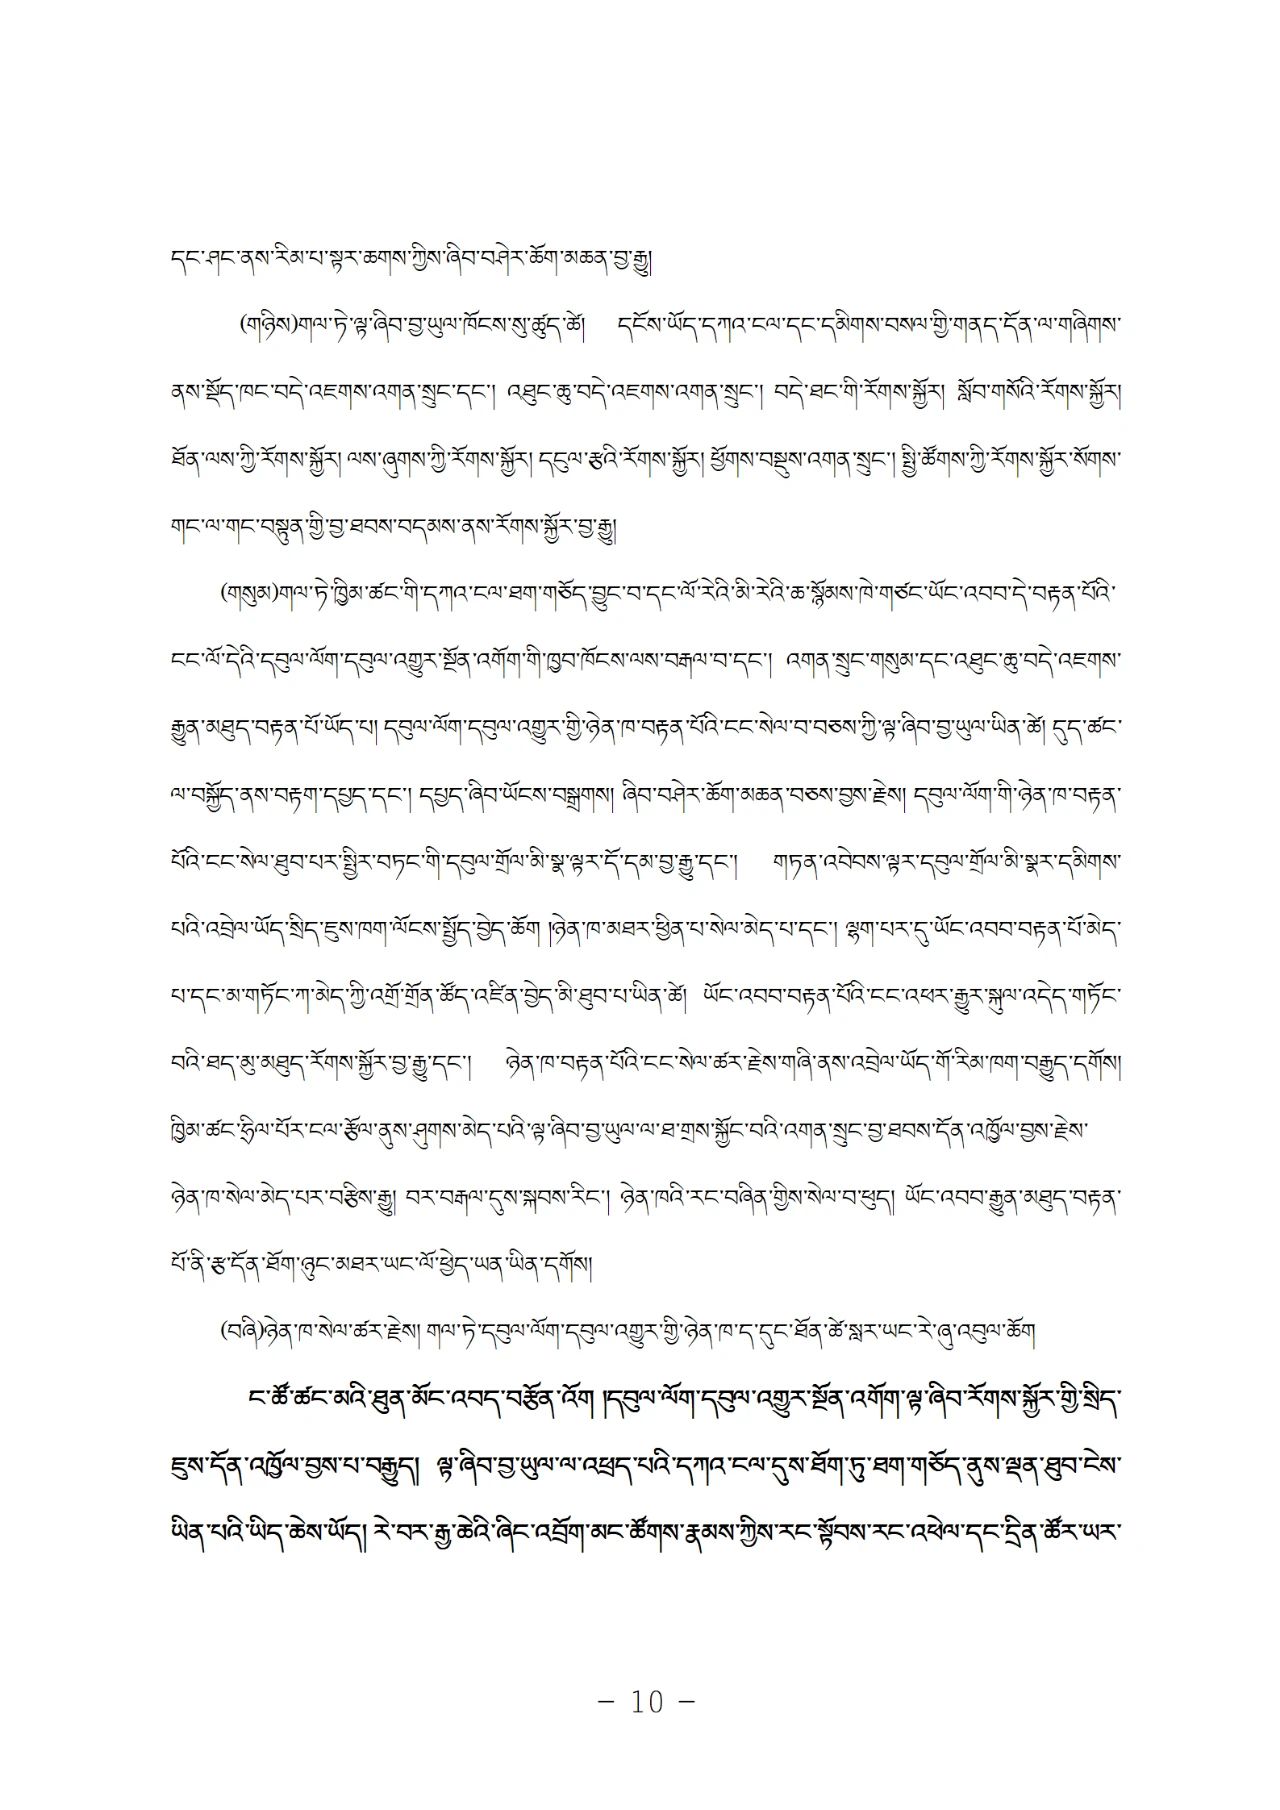 དང་ཤང་ནས་རིམ་པ་སྟར་ཆགས་ཀྱིས་ཞིབ་བཤེར་ཆོག་མཆན་བྱ་རྒྱུ།
(གཉིས)གལ་ཏེ་ལྟ་ཞིབ་བྱ་ཡུལ་ཁོངས་སུ་ཚུད་ཚེ། དངོས་ཡོད་དཀའ་ངལ་དང་དམིགས་བསལ་གྱི་གནད་དོན་ལ་གཞིགས་
ནས་སྡོད་ཁང་བདེ་འཇགས་འགན་སྲུང་དང་། འཐུང་ཆུ་བདེ་འཇགས་འགན་སྲུང་། བདེ་ཐང་གི་རོགས་སྐྱོར། སློབ་གསོའི་རོགས་སྐྱོར།
ཐོན་ལས་ཀྱི་རོགས་སྐྱོར། ལས་ཞུགས་ཀྱི་རོགས་སྐྱོར། དངུལ་རྩའི་རོགས་སྐྱོར། ཕྱོགས་བསྡུས་འགན་སྲུང་། སྤྱི་ཚོགས་ཀྱི་རོགས་སྐྱོར་སོགས་
གང་ལ་གང་བསྟུན་གྱི་བྱ་ཐབས་བདམས་ནས་རོགས་སྐྱོར་བྱ་རྒྱུ།
(གསུམ)གལ་ཏེ་ཁྱིམ་ཚང་གི་དཀའ་ངལ་ཐག་གཅོད་བྱུང་བ་དང་ལོ་རེའི་མི་རེའི་ཆ་སྙོམས་ཁེ་གཙང་ཡོང་འབབ་དེ་བརྟན་པོའི་
ངང་ལོ་དེའི་དབུལ་ལོག་དབུལ་འགྱུར་སྔོན་འགོག་གི་ཁྱབ་ཁོངས་ལས་བརྒལ་བ་དང་། འགན་སྲུང་གསུམ་དང་འཐུང་ཆུ་བདེ་འཇགས་
རྒྱུན་མཐུད་བརྟན་པོ་ཡོད་པ། དབུལ་ལོག་དབུལ་འགྱུར་གྱི་ཉེན་ཁ་བརྟན་པོའི་ངང་སེལ་བ་བཅས་ཀྱི་ལྟ་ཞིབ་བྱ་ཡུལ་ཡིན་ཚེ། དུད་ཚང་
ལ་བསྐྱོད་ནས་བརྟག་དཔྱད་དང་། དཔྱད་ཞིབ་ཡོངས་བསྒྲགས། ཞིབ་བཤེར་ཆོག་མཆན་བཅས་བྱས་རྗེས། དབུལ་ལོག་གི་ཉེན་ཁ་བརྟན་
པོའི་ངང་སེལ་ཐུབ་པར་སྤྱིར་བཏང་གི་དབུལ་གྲོལ་མི་སྣ་ལྟར་དོ་དམ་བྱ་རྒྱུ་དང་། གཏན་འབེབས་ལྟར་དབུལ་གྲོལ་མི་སྣར་དམིགས་
པའི་འབྲེལ་ཡོད་སྲིད་ཇུས་ཁག་ལོངས་སྤྱོད་བྱེད་ཆོག །ཉེན་ཁ་མཐར་ཕྱིན་པ་སེལ་མེད་པ་དང་། ལྷག་པར་དུ་ཡོང་འབབ་བརྟན་པོ་མེད་
པ་དང་མ་གཏོང་ཀ་མེད་ཀྱི་འགྲོ་གྲོན་ཚོད་འཛིན་བྱེད་མི་ཐུབ་པ་ཡིན་ཚེ། ཡོང་འབབ་བརྟན་པོའི་ངང་འཕར་རྒྱུར་སྐུལ་འདེད་གཏོང་
བའི་ཐད་མུ་མཐུད་རོགས་སྐྱོར་བྱ་རྒྱུ་དང་། ཉེན་ཁ་བརྟན་པོའི་ངང་སེལ་ཚར་རྗེས་གཞི་ནས་འབྲེལ་ཡོད་གོ་རིམ་ཁག་བརྒྱུད་དགོས།
ཁྱིམ་ཚང་ཧྲིལ་པོར་ངལ་རྩོལ་ནུས་ཤུགས་མེད་པའི་ལྟ་ཞིབ་བྱ་ཡུལ་ལ་ཐ་གྲས་སྐྱོང་བའི་འགན་སྲུང་བྱ་ཐབས་དོན་འཁྱོལ་བྱས་རྗེས་
ཉེན་ཁ་སེལ་མེད་པར་བརྩིས་རྒྱུ། བར་བརྒལ་དུས་སྐབས་རིང་། ཉེན་ཁའི་རང་བཞིན་གྱིས་སེལ་བ་ཕུད། ཡོང་འབབ་རྒྱུན་མཐུད་བརྟན་
པོ་ནི་རྩ་དོན་ཐོག་ཉུང་མཐར་ཡང་ལོ་ཕྱེད་ཡན་ཡིན་དགོས།
(བཞི)ཉེན་ཁ་སེལ་ཚར་རྗེས། གལ་ཏེ་དབུལ་ལོག་དབུལ་འགྱུར་གྱི་ཉེན་ཁ་ད་དུང་ཐོན་ཚེ་སླར་ཡང་རེ་ཞུ་འབུལ་ཆོག
ང་ཚོ་ཚང་མའི་ཐུན་མོང་འབད་བརྩོན་འོག །དབུལ་ལོག་དབུལ་འགྱུར་སྔོན་འགོག་ལྟ་ཞིབ་རོགས་སྐྱོར་གྱི་སྲིད་
ཇུས་དོན་འཁྱོལ་བྱས་པ་བརྒྱུད། ལྟ་ཞིབ་བྱ་ཡུལ་ལ་འཕྲད་པའི་དཀའ་ངལ་དུས་ཐོག་ཏུ་ཐག་གཅོད་ནུས་ལྡན་ཐུབ་ངེས་
ཡིན་པའི་ཡིད་ཆེས་ཡོད། རེ་བར་རྒྱ་ཆེའི་ཞིང་འབྲོག་མང་ཚོགས་རྣམས་ཀྱིས་རང་སྟོབས་རང་འཕེལ་དང་དྲིན་ཚོར་ཡར་
- 10 -